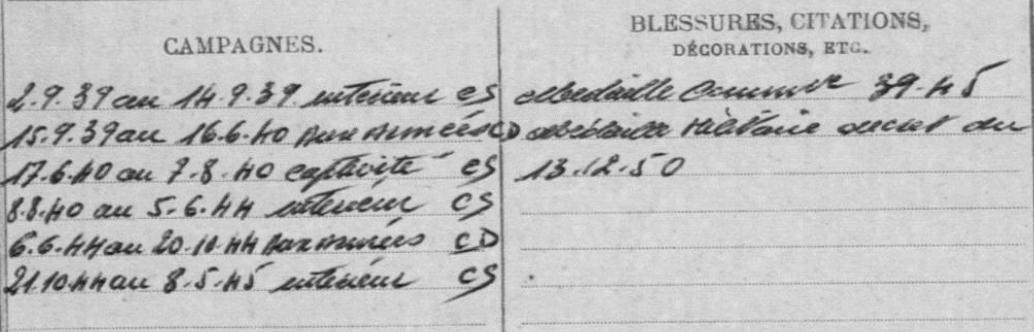 CAMPAGNES.
2.9.39 au 14.9.39 interieur CS
15.9.39 au 16.6.40 Aux Armées CD
17.6.40 au 7-8-40 captivité CS
8.8.40 au 5-6-44 interieur CS
6.6.44 au 20.10.44 Aux Armées CD
21.10.44 au 8-5-45 interieur CS
BLESSURES, CITATIONS,
DÉCORATIONS, ETC.
Médaille Commve 39-45
Médaille Militaire decret du
13.12.50